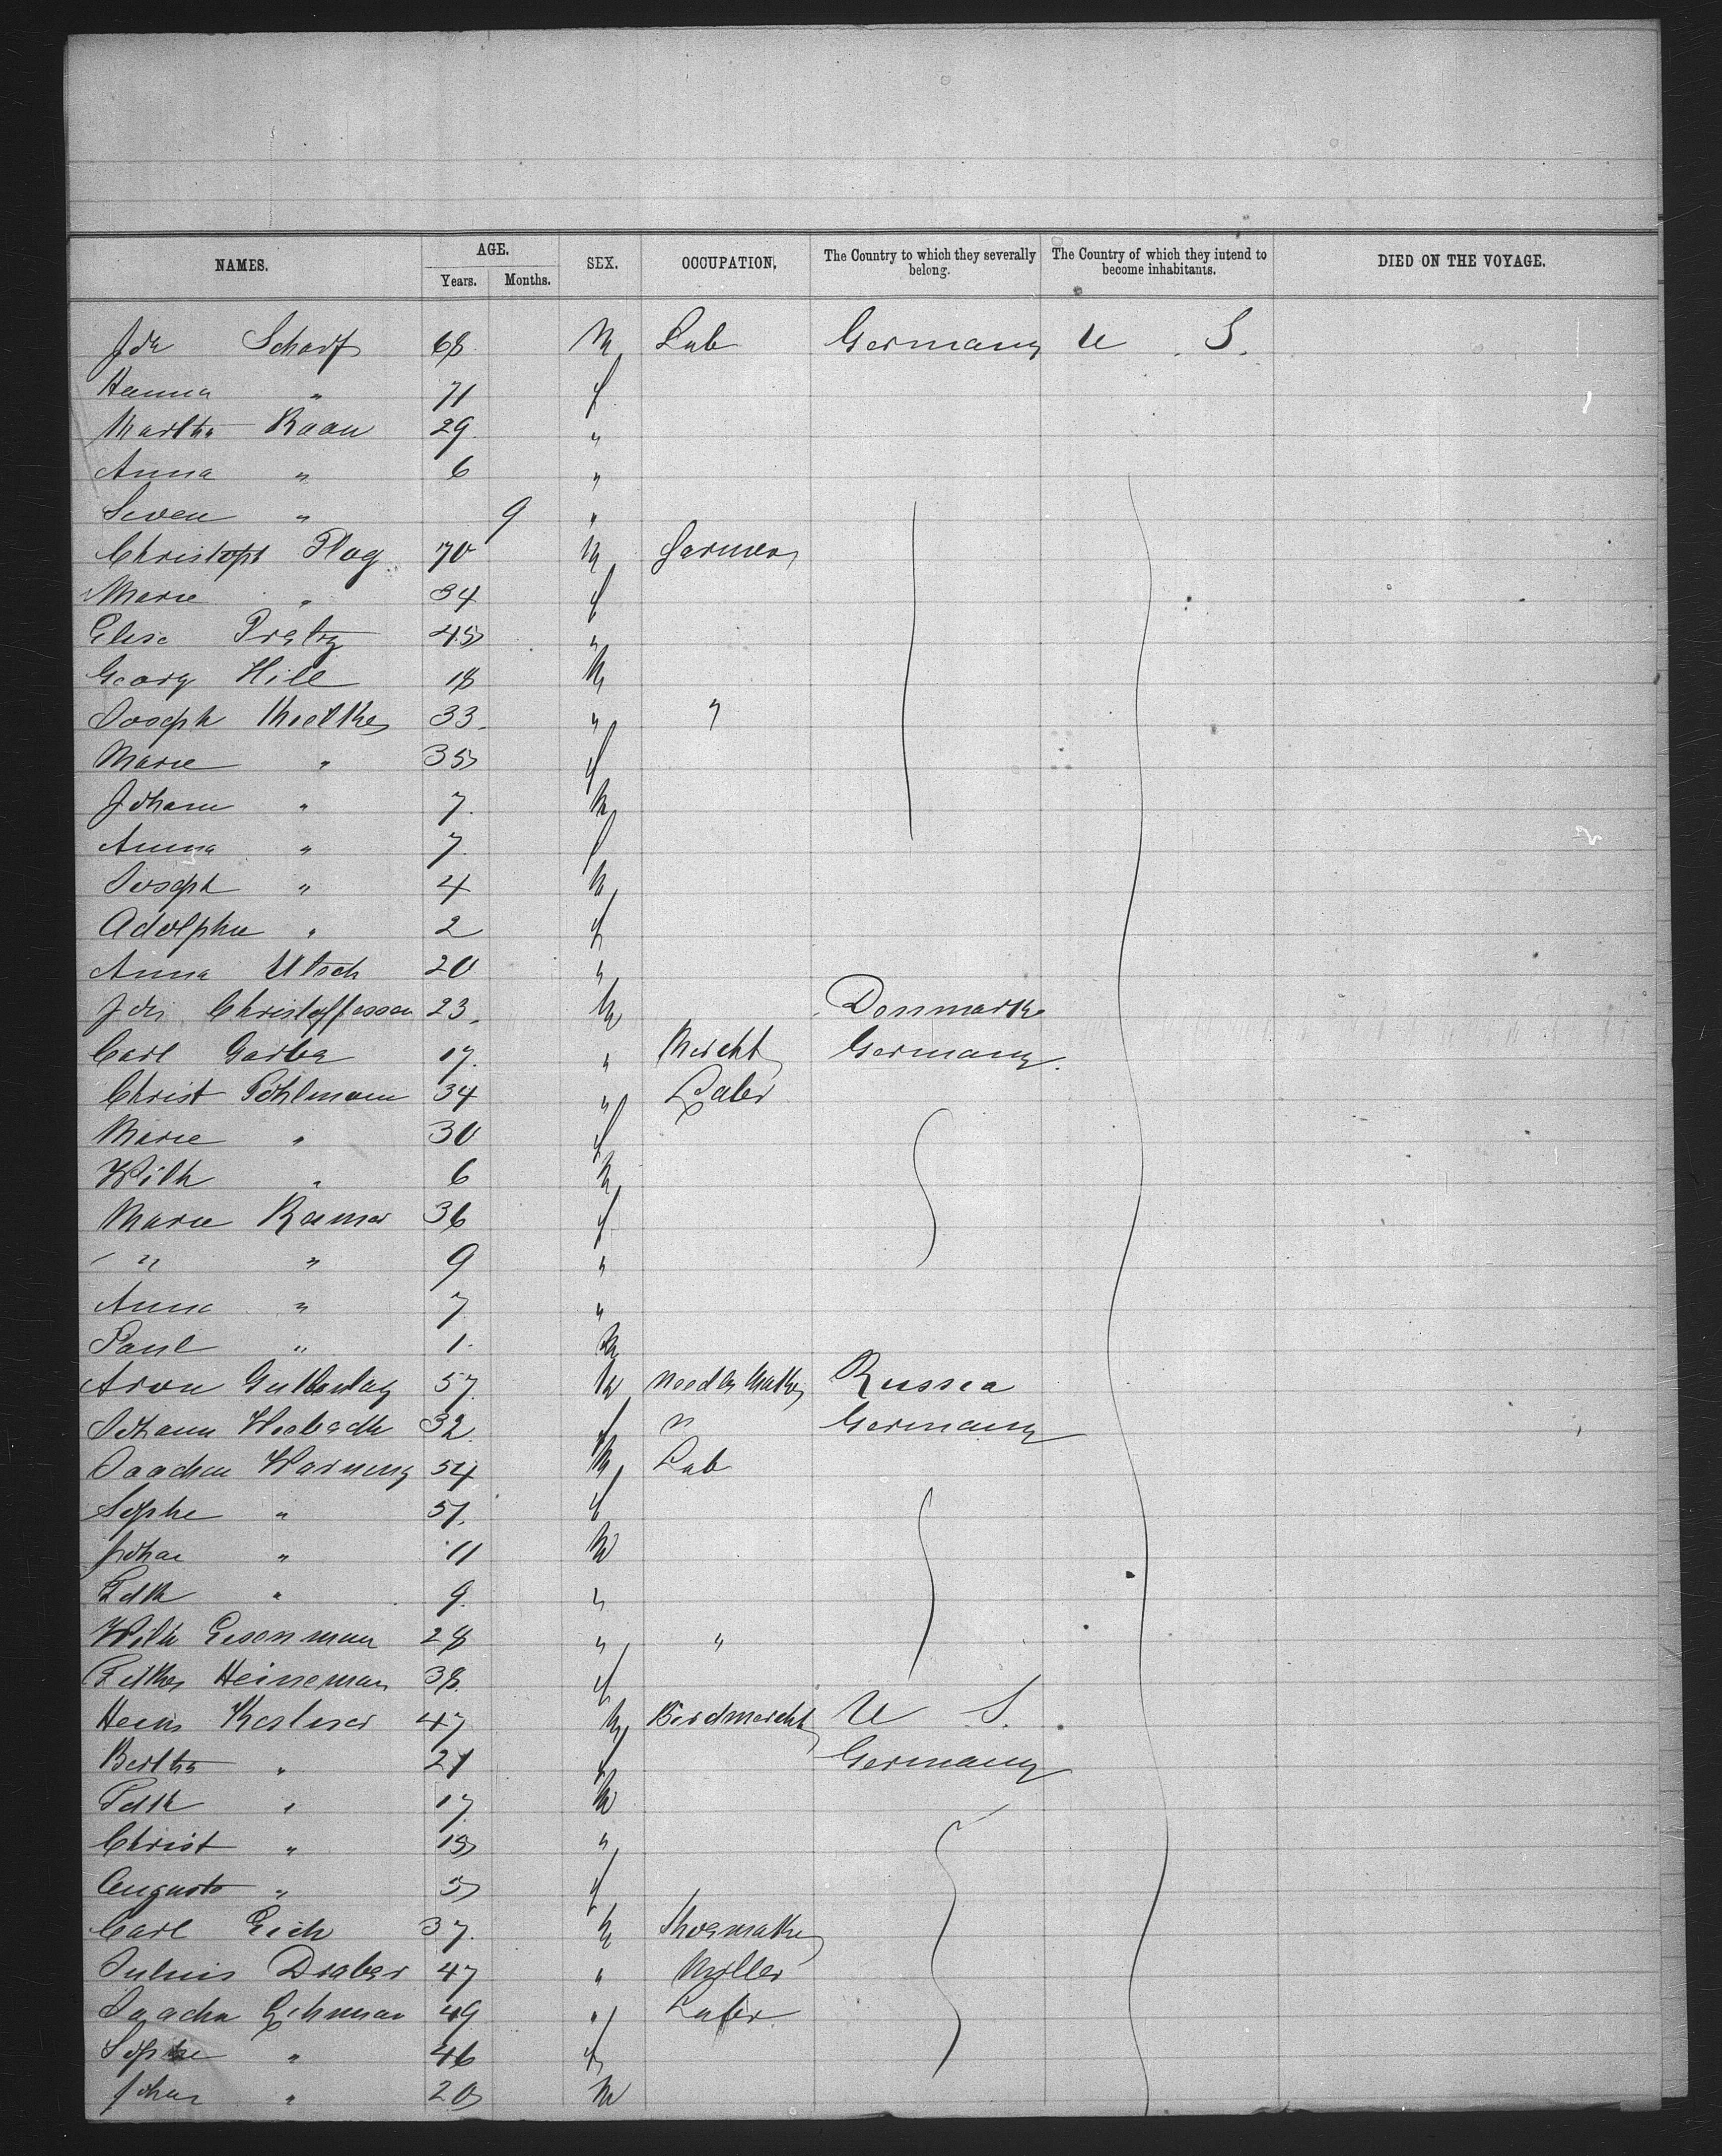 NAMES. AGE. SEX. OCCUPATION. The Country to which they severally belong. The Country of which they intend to become inhabitants. DIED ON THE VOYAGE.
Years. Months.
Joh Scharf 68 M Lab Germany U. S.
Hanna " 71 f
Martha Raan 29 "
Anna " 6 "
" 9 "
Christoph Plog 70 M farmer
Marie " 34 f
Elise 45 "
Georg Hill 18 M
Joseph Mielke 33 " "
Marie " 35 f
Johann " 7 M
Anna " 7 f
Joseph " 4 M
Adolphie " 2 f
Anna Utsch 20 "
Joh Christoffersen 23 M Denmark
Carl Garbe 17 " Mercht Germany
Christ Pohlmann 34 " Labr
Marie " 30 f
Wilh " 6 M
Marie Ramer 36 f
" " 9 "
Anna " 7 "
Paul " 1 M
Aron 57 M Needle Maker Russia
Johann 32 f " Germany
Joachim Warning 54 M Lab
Sophie " 51 f
Johan " 11 M
Fdk " 9 "
Wilh Eisenman 28 " "
Heineman 38 f
Heins Kastner 47 M Birdmercht U S.
Bertha " 21 f Germany
Fdk " 17 M
Christ " 15 "
Auguste " 5 f
Carl Eich 37 M Shoemaker
Julius Draber 47 " Miller
Joachn Lehman 49 " Labr
Sophie " 46 f
Johan " 20 M